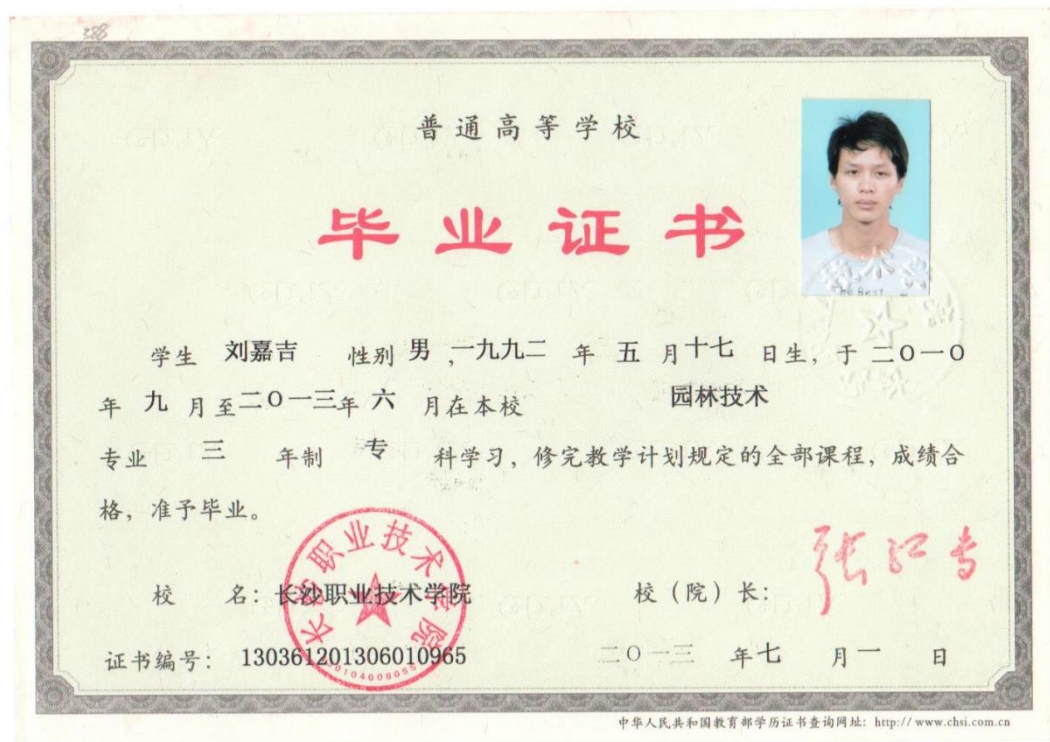 388
普通高等学校
毕业证书
The Best
学生 刘嘉吉 性别 男，一九九二 年 五 月十七 日生，于 二〇一〇
年 九 月至二〇一三年 六 月在本校 园林技术
专业 三 年制 专 科学习，修完教学计划规定的全部课程，成绩合
格，准予毕业。
长沙职业技术学院
校 名：长沙职业技术学院 校（院）长：
证书编号：130361201306010965 二〇一三 年七 月一 日
中华人民共和国教育部学历证书查询网址：http://www.chsi.com.cn